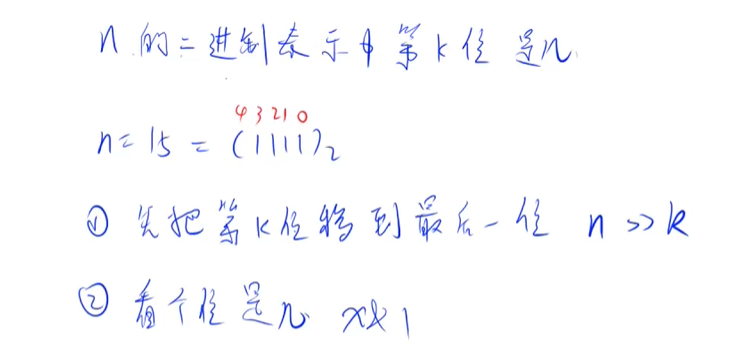 n 的二进制表示中第k位是几
4 3 2 1 0
n = 15 = (1111)₂
① 先把第k位移到最后一位 n >> k
② 看个位是几 x & 1